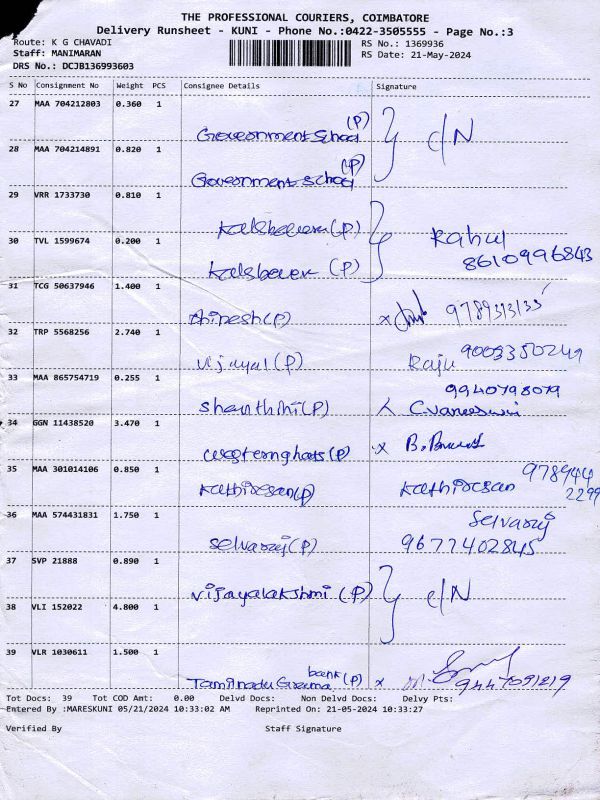 THE PROFESSIONAL COURIERS, COIMBATORE
Delivery Runsheet - KUNI - Phone No.:0422-3505555 - Page No.:3
Route: K G CHAVADI
Staff: MANIMARAN
DRS No.: DCJB136993603
RS No.: 1369936
RS Date: 21-May-2024
S No Consignment No Weight PCS Consignee Details Signature
27 MAA 704212803 0.360 1
Government School (P) } c/N
28 MAA 704214891 0.820 1
Government School (P)
29 VRR 1733730 0.810 1
(P) } Rahul
8610996843
30 TVL 1599674 0.200 1
(P)
31 TCG 50637946 1.400 1
Dhinesh (P) x 9789313135
32 TRP 5568256 2.740 1
Vijayal (P) Raju 9003350249
33 MAA 865754719 0.255 1
9940798079
Shanthhi (P)
34 GGN 11438520 3.470 1
westernghats (P) x
35 MAA 301014106 0.850 1
Kathiresan (P) Kathiresan 978944
2299
36 MAA 574431831 1.750 1
Selvaraj
Selvaraj (P) 9677402845
37 SVP 21888 0.890 1
Vijayalakshmi (P) } c/N
38 VLI 152022 4.800 1
39 VLR 1030611 1.500 1
Tamilnadu Grama bank (P) x 9447091219
Tot Docs: 39 Tot COD Amt: 0.00 Delvd Docs: Non Delvd Docs: Delvy Pts:
Entered By :MARESKUNI 05/21/2024 10:33:02 AM Reprinted On: 21-05-2024 10:33:27
Verified By Staff Signature